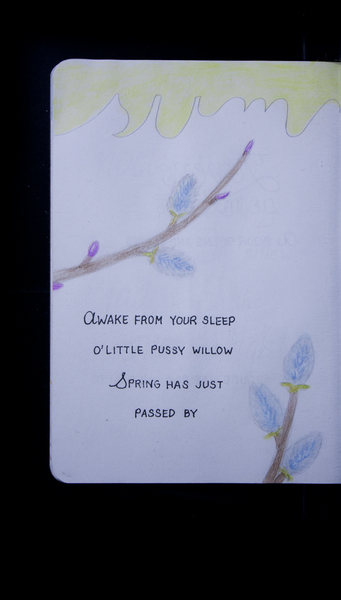 Awake from your sleep
o'little pussy willow
Spring has just
passed by